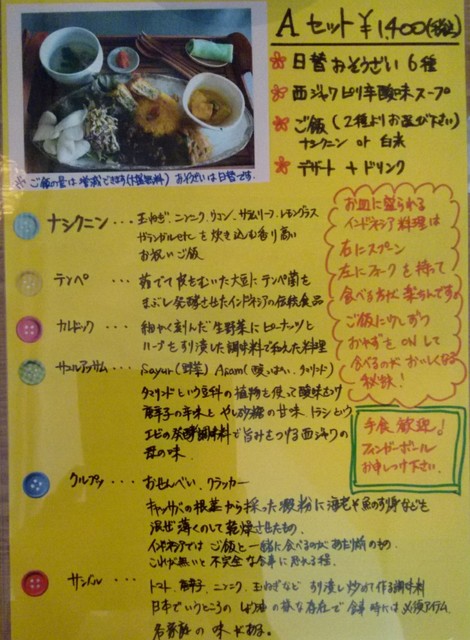 Aセット ¥1400(税込)
日替おそうざい6種
西ジャワピリ辛酸味スープ
ご飯(2種よりお選び下さい)
ナシクニン or 白米
デザート + ドリンク
※ ご飯の量は増減できます(増量無料) おそうざいは日替です.
お皿に盛られる
インドネシア料理は
右にスプーン
左にフォークを持って
食べる方が楽ちんです。
ご飯に少しずつ
おかずをONして
食べるのがおいしくなる
秘訣!
手食歓迎!
フィンガーボール
お申しつけ下さい.
ナシクニン・・・玉ねぎ、ニンニク、ウコン、サラムリーフ、レモングラス
ガランガルetcを炊き込む香り高い
お祝いご飯
テンペ・・・茹でて皮をむいた大豆にテンペ菌を
まぶし発酵させたインドネシアの伝統食品
カルドック・・・細かく刻んだ生野菜にピーナッツと
ハーブをすり潰した調味料で和えた料理
サユールアッサム・・・Sayur(野菜) Asam(酸っぱい、タマリンド)
タマリンドという豆科の植物を使って酸味をつけ
唐辛子の辛味とやし砂糖の甘味、トラシという
エビの発酵調味料で旨みをつける西ジャワの
母の味.
クルプッ・・・おせんべい、クラッカー
キャッサバの根茎から採った澱粉に海老や魚のすり身などを
混ぜ薄くのして乾燥させたもの.
インドネシアではご飯と一緒に食べるのがあたり前のもの.
これが無いと不完全な食事に思える程.
サンバル・・・トマト、唐辛子、ニンニク、玉ねぎなどすり潰し炒めて作る調味料
日本でいうところのしょう油の様な存在で食事時には必須アイテム
各家庭の味がある。